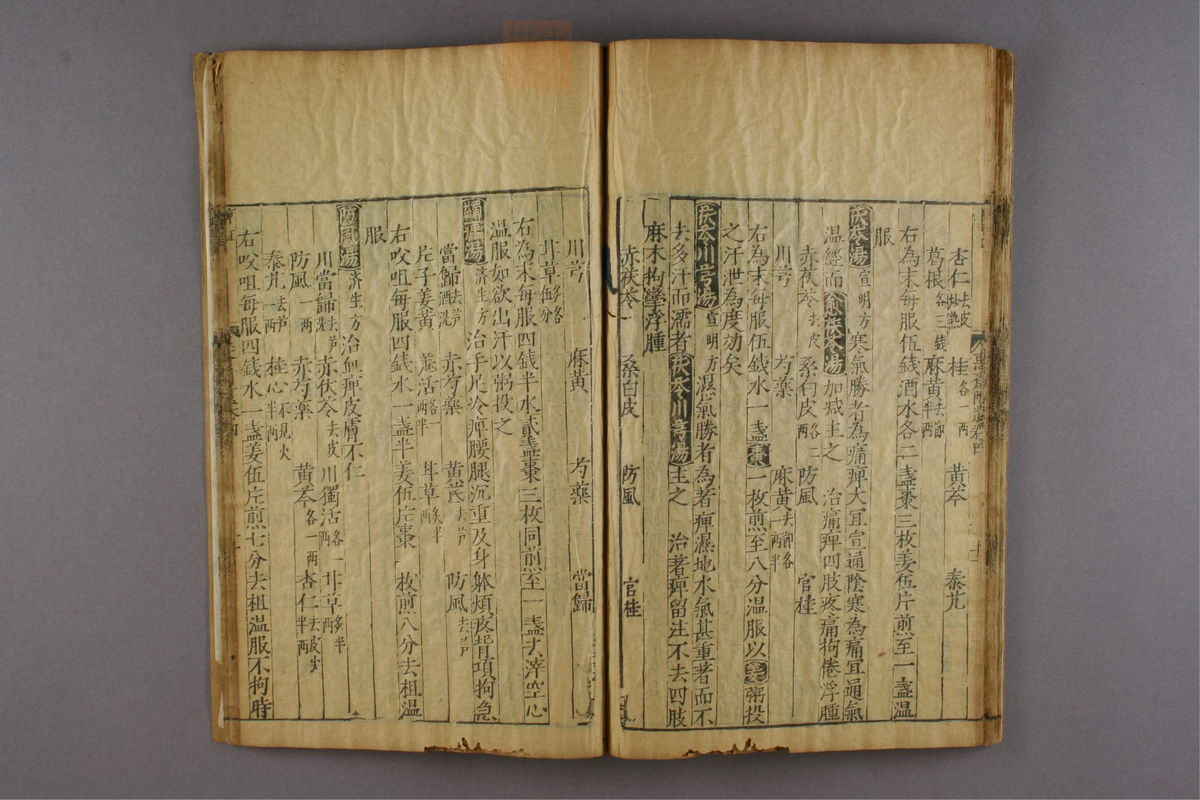 杏仁去皮炒熟 桂各一两 黄芩 秦艽
葛根各三錢 麻黄去節半两
右為末每服伍錢酒水各二盏棗三枚姜伍片煎至一盏温
服
茯苓湯宣明方寒氣勝者為痛痺大冝宣通陰寒為痛冝通氣
温經而愈茯苓湯加减主之 治痛痺四肢疼痛拘倦浮腫
赤茯苓去皮 桑白皮各二两 防風 官桂
川芎 芍藥 麻黄去節各一两半
右為末每服伍錢水一盏棗一枚煎至八分温服以姜粥投
之汗泄為度効矣
茯苓川芎湯宣明方濕氣勝者為著痺濕地水氣甚重著而不
去多汗而濡者茯苓川芎湯主之 治著痺留注不去四肢
麻木拘攣浮腫
赤茯苓 桑白皮 防風 官桂
川芎 麻黄 芍藥 當歸
甘草各等分
右為末每服四錢半水貳盏棗三枚同煎至一盏去滓空心
温服如欲出汗以粥投之
蠲痺湯済生方治手足冷痺腰腿沉重及身躰煩疼背項拘急
當歸去芦酒 赤芍藥 黄芪去芦 防風去芦
片子姜黄 羗活各一两半 甘草炙半两
右㕮咀每服四錢水一盏半姜伍片棗一枚煎八分去柤温
服
防風湯済生方治血痺皮膚不仁
川當歸去芦 赤茯苓去皮 川獨活各一两 甘草炙半两
防風一两 赤芍藥 黄芩各一两 杏仁去皮尖半两
秦艽去芦一两 桂心不見火半两
右㕮咀每服四錢水一盏姜伍片煎七分去柤温服不拘時